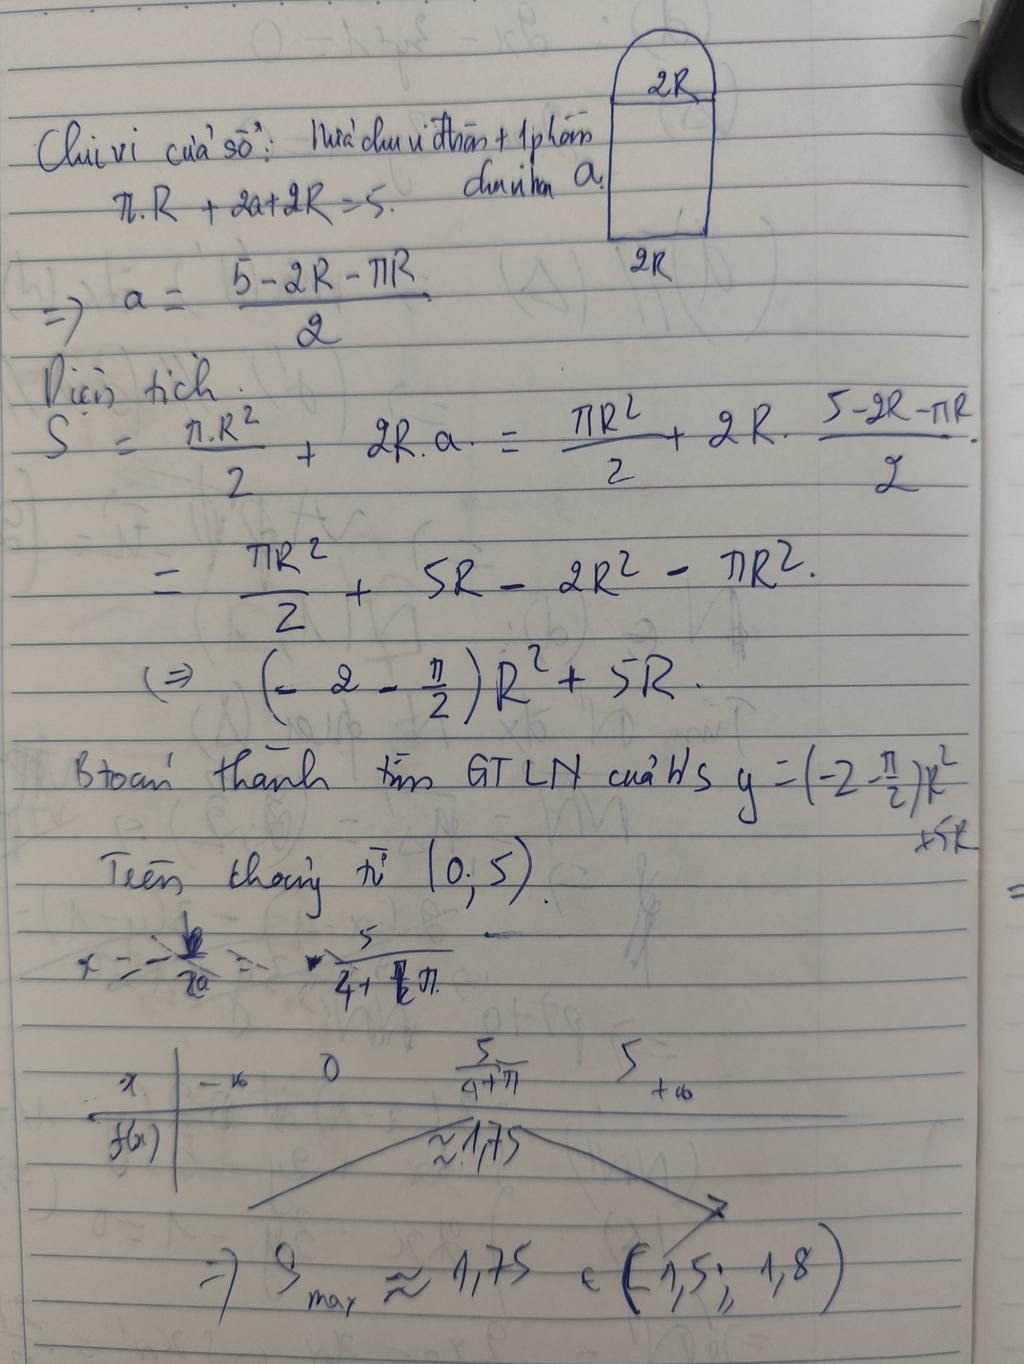 2R
Chu vi cửa sổ: Nửa chu vi tròn + 1 phần
chu vi hcn a
π.R + 2a+2R = 5.
2R
=> a = (5-2R-πR)/2
Diện tích.
S = π.R²/2 + 2R.a. = πR²/2 + 2R. (5-2R-πR)/2.
= πR²/2 + 5R - 2R² - πR².
(=> (-2 - π/2)R² + 5R.
Btoán thành tìm GTLN của h/s y = (-2-π/2)R²
+5R
Trên khoảng từ (0; 5).
x = -b/2a = 5/(4+π)
x -∞ 0 5/(4+π) 5 +∞
f(x) ≈1,75
=> Smax ≈ 1,75 ∈ (1,5; 1,8)